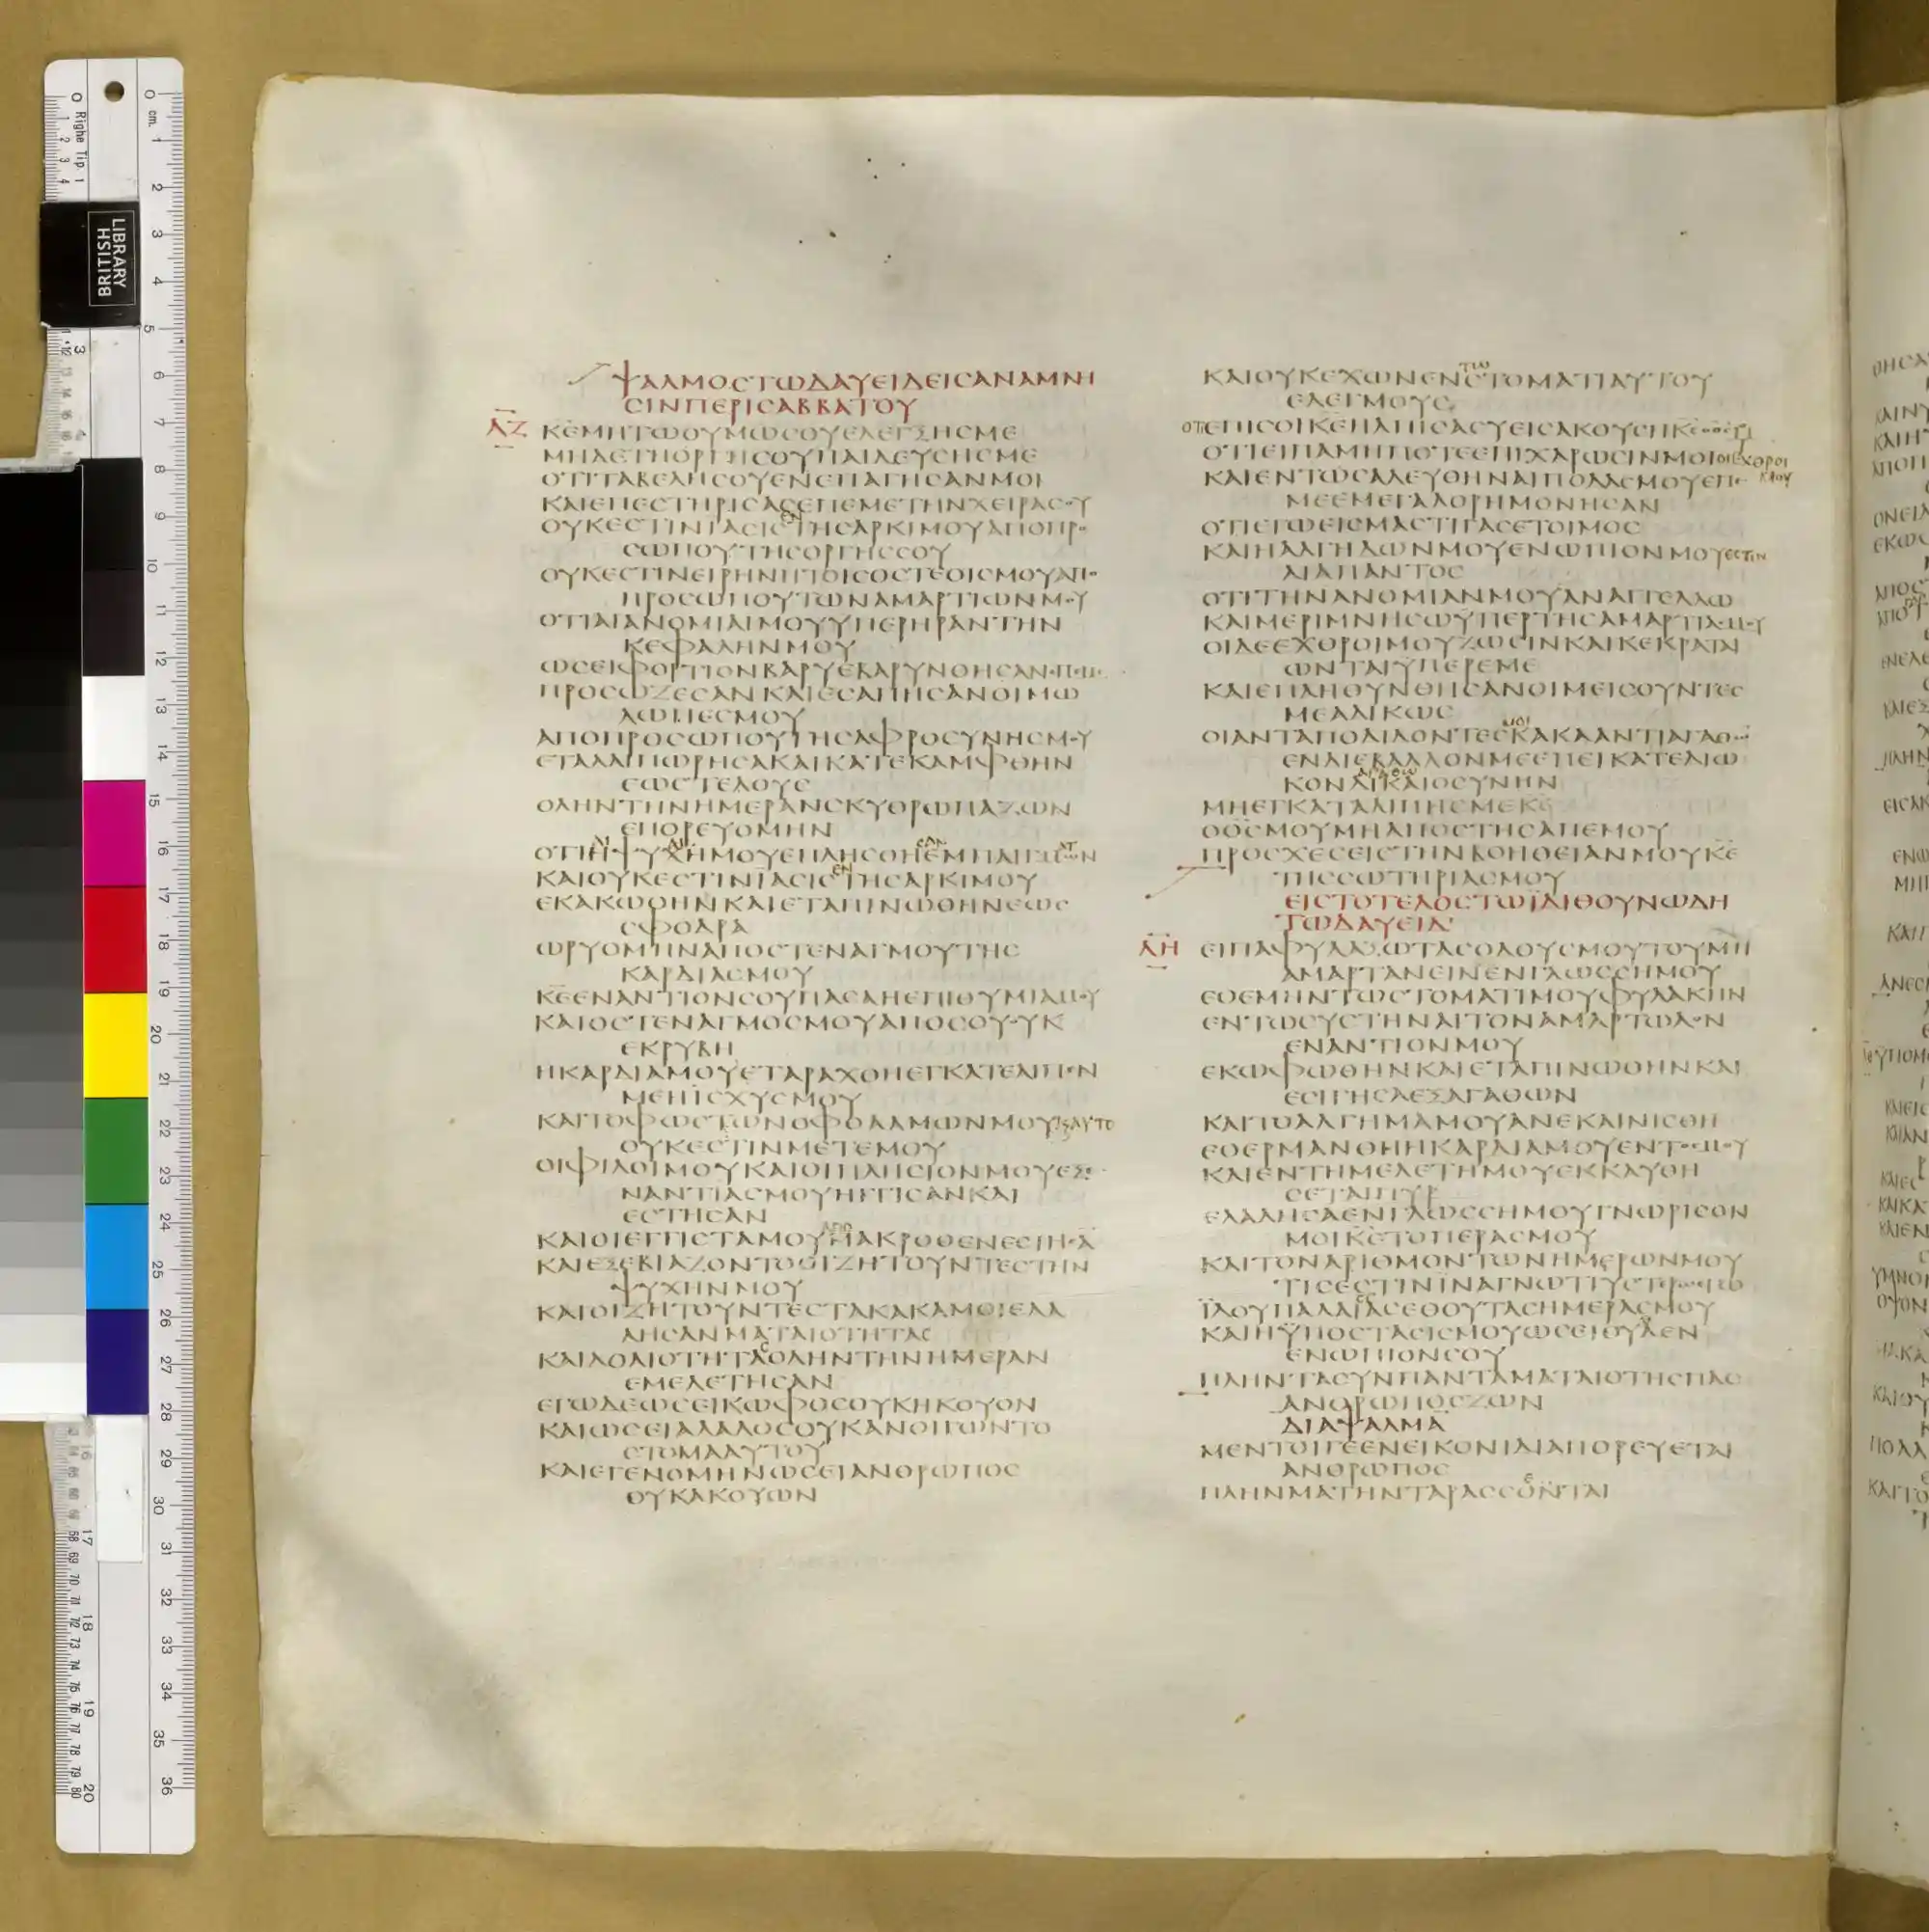 ΨΑΛΜΟΣΤΩΔΑΥΕΙΔΕΙΣΑΝΑΜΝΗ
ΣΙΝΠΕΡΙΣΑΒΒΑΤΟΥ
ΛΖ ΚΕΜΗΤΩΘΥΜΩΣΟΥΕΛΕΓΞΗΣΜΕ
ΜΗΔΕΤΗΟΡΓΗΣΟΥΠΑΙΔΕΥΣΗΣΜΕ
ΟΤΙΤΑΒΕΛΗΣΟΥΕΝΕΠΑΓΗΣΑΝΜΟΙ
ΚΑΙΕΠΕΣΤΗΡΙΣΑΣΕΠΕΜΕΤΗΝΧΕΙΡΑΣΟΥ
ΟΥΚΕΣΤΙΝΙΑΣΙΣΕΝΤΗΣΑΡΚΙΜΟΥΑΠΟΠΡΟ
ΣΩΠΟΥΤΗΣΟΡΓΗΣΣΟΥ
ΟΥΚΕΣΤΙΝΕΙΡΗΝΗΤΟΙΣΟΣΤΕΟΙΣΜΟΥΑΠΟ
ΠΡΟΣΩΠΟΥΤΩΝΑΜΑΡΤΙΩΝΜΟΥ
ΟΤΙΑΙΑΝΟΜΙΑΙΜΟΥΥΠΕΡΗΡΑΝΤΗΝ
ΚΕΦΑΛΗΝΜΟΥ
ΩΣΕΙΦΟΡΤΙΟΝΒΑΡΥΕΒΑΡΥΝΘΗΣΑΝ
ΠΡΟΣΩΖΕΣΑΝΚΑΙΕΣΑΠΗΣΑΝΟΙΜΩ
ΛΩΠΕΣΜΟΥ
ΑΠΟΠΡΟΣΩΠΟΥΤΗΣΑΦΡΟΣΥΝΗΣΜΟΥ
ΕΤΑΛΑΙΠΩΡΗΣΑΚΑΙΚΑΤΕΚΑΜΦΘΗΝ
ΕΩΣΤΕΛΟΥΣ
ΟΛΗΝΤΗΝΗΜΕΡΑΝΣΚΥΘΡΩΠΑΖΩΝ
ΕΠΟΡΕΥΟΜΗΝ
ΟΤΙΗΨΥΧΗΜΟΥΕΠΛΗΣΘΗΕΜΠΑΙΓΜΩΝ
ΚΑΙΟΥΚΕΣΤΙΝΙΑΣΙΣΕΝΤΗΣΑΡΚΙΜΟΥ
ΕΚΑΚΩΘΗΝΚΑΙΕΤΑΠΙΝΩΘΗΝΕΩΣ
ΣΦΟΔΡΑ
ΩΡΥΟΜΗΝΑΠΟΣΤΕΝΑΓΜΟΥΤΗΣ
ΚΑΡΔΙΑΣΜΟΥ
ΚΕΕΝΑΝΤΙΟΝΣΟΥΠΑΣΑΗΕΠΙΘΥΜΙΑΜΟΥ
ΚΑΙΟΣΤΕΝΑΓΜΟΣΜΟΥΑΠΟΣΟΥΟΥΚ
ΕΚΡΥΒΗ
ΗΚΑΡΔΙΑΜΟΥΕΤΑΡΑΧΘΗΕΓΚΑΤΕΛΙΠΕΝ
ΜΕΗΙΣΧΥΣΜΟΥ
ΚΑΙΤΟΦΩΣΤΩΝΟΦΘΑΛΜΩΝΜΟΥ
ΟΥΚΕΣΤΙΝΜΕΤΕΜΟΥ
ΟΙΦΙΛΟΙΜΟΥΚΑΙΟΙΠΛΗΣΙΟΝΜΟΥΕΞΕ
ΝΑΝΤΙΑΣΜΟΥΗΓΓΙΣΑΝΚΑΙ
ΕΣΤΗΣΑΝ
ΚΑΙΟΙΕΓΓΙΣΤΑΜΟΥΑΠΟΜΑΚΡΟΘΕΝΕΣΤΗΣΑ
ΚΑΙΕΞΕΒΙΑΖΟΝΤΟΟΙΖΗΤΟΥΝΤΕΣΤΗΝ
ΨΥΧΗΝΜΟΥ
ΚΑΙΟΙΖΗΤΟΥΝΤΕΣΤΑΚΑΚΑΜΟΙΕΛΑ
ΛΗΣΑΝΜΑΤΑΙΟΤΗΤΑΣ
ΚΑΙΔΟΛΙΟΤΗΤΑΣΟΛΗΝΤΗΝΗΜΕΡΑΝ
ΕΜΕΛΕΤΗΣΑΝ
ΕΓΩΔΕΩΣΕΙΚΩΦΟΣΟΥΚΗΚΟΥΟΝ
ΚΑΙΩΣΕΙΑΛΑΛΟΣΟΥΚΑΝΟΙΓΩΝΤΟ
ΣΤΟΜΑΑΥΤΟΥ
ΚΑΙΕΓΕΝΟΜΗΝΩΣΕΙΑΝΘΡΩΠΟΣ
ΟΥΚΑΚΟΥΩΝ
ΚΑΙΟΥΚΕΧΩΝΕΝΤΩΣΤΟΜΑΤΙΑΥΤΟΥ
ΕΛΕΓΜΟΥΣ
ΟΤΙΕΠΙΣΟΙΚΕΗΛΠΙΣΑΣΥΕΙΣΑΚΟΥΣΗΚΕ
ΟΤΙΕΙΠΑΜΗΠΟΤΕΕΠΙΧΑΡΩΣΙΝΜΟΙΟΙΕΧΘΡΟΙ
ΚΑΙΕΝΤΩΣΑΛΕΥΘΗΝΑΙΠΟΔΑΣΜΟΥΕΠ
ΜΕΕΜΕΓΑΛΟΡΗΜΟΝΗΣΑΝ
ΟΤΙΕΓΩΕΙΣΜΑΣΤΙΓΑΣΕΤΟΙΜΟΣ
ΚΑΙΗΑΛΓΗΔΩΝΜΟΥΕΝΩΠΙΟΝΜΟΥΕΣΤΙΝ
ΔΙΑΠΑΝΤΟΣ
ΟΤΙΤΗΝΑΝΟΜΙΑΝΜΟΥΑΝΑΓΓΕΛΛΩ
ΚΑΙΜΕΡΙΜΝΗΣΩΥΠΕΡΤΗΣΑΜΑΡΤΙΑΣΜΟΥ
ΟΙΔΕΕΧΘΡΟΙΜΟΥΖΩΣΙΝΚΑΙΚΕΚΡΑΤΑΙ
ΩΝΤΑΙΥΠΕΡΕΜΕ
ΚΑΙΕΠΛΗΘΥΝΘΗΣΑΝΟΙΜΕΙΣΟΥΝΤΕΣ
ΜΕΑΔΙΚΩΣ
ΟΙΑΝΤΑΠΟΔΙΔΟΝΤΕΣΜΟΙΚΑΚΑΑΝΤΙΑΓΑΘΩΝ
ΕΝΔΙΕΒΑΛΛΟΝΜΕΕΠΕΙΚΑΤΕΔΙΩ
ΚΟΝΔΙΚΑΙΟΣΥΝΗΝ
ΜΗΕΓΚΑΤΑΛΙΠΗΣΜΕΚΕ
ΟΘΣΜΟΥΜΗΑΠΟΣΤΗΣΑΠΕΜΟΥ
ΠΡΟΣΧΕΣΕΙΣΤΗΝΒΟΗΘΕΙΑΝΜΟΥΚΕ
ΤΗΣΣΩΤΗΡΙΑΣΜΟΥ
ΕΙΣΤΟΤΕΛΟΣΤΩΙΔΙΘΟΥΝΩΔΗ
ΤΩΔΑΥΕΙΔ
ΛΗ ΕΙΠΑΦΥΛΑΞΩΤΑΣΟΔΟΥΣΜΟΥΤΟΥΜΗ
ΑΜΑΡΤΑΝΕΙΝΕΝΓΛΩΣΣΗΜΟΥ
ΕΘΕΜΗΝΤΩΣΤΟΜΑΤΙΜΟΥΦΥΛΑΚΗΝ
ΕΝΤΩΣΥΣΤΗΝΑΙΤΟΝΑΜΑΡΤΩΛΟΝ
ΕΝΑΝΤΙΟΝΜΟΥ
ΕΚΩΦΩΘΗΝΚΑΙΕΤΑΠΙΝΩΘΗΝΚΑΙ
ΕΣΙΓΗΣΑΕΞΑΓΑΘΩΝ
ΚΑΙΤΟΑΛΓΗΜΑΜΟΥΑΝΕΚΑΙΝΙΣΘΗ
ΕΘΕΡΜΑΝΘΗΗΚΑΡΔΙΑΜΟΥΕΝΤΟΣΜΟΥ
ΚΑΙΕΝΤΗΜΕΛΕΤΗΜΟΥΕΚΚΑΥΘΗ
ΣΕΤΑΙΠΥΡ
ΕΛΑΛΗΣΑΕΝΓΛΩΣΣΗΜΟΥΓΝΩΡΙΣΟΝ
ΜΟΙΚΕΤΟΠΕΡΑΣΜΟΥ
ΚΑΙΤΟΝΑΡΙΘΜΟΝΤΩΝΗΜΕΡΩΝΜΟΥ
ΤΙΣΕΣΤΙΝΙΝΑΓΝΩΤΙΥΣΤΕΡΩΕΓΩ
ΙΔΟΥΠΑΛΑΙΑΣΕΘΟΥΤΑΣΗΜΕΡΑΣΜΟΥ
ΚΑΙΗΥΠΟΣΤΑΣΙΣΜΟΥΩΣΕΙΟΥΔΕΝ
ΕΝΩΠΙΟΝΣΟΥ
ΠΛΗΝΤΑΣΥΝΠΑΝΤΑΜΑΤΑΙΟΤΗΣΠΑΣ
ΑΝΘΡΩΠΟΣΖΩΝ
ΔΙΑΨΑΛΜΑ
ΜΕΝΤΟΙΓΕΕΝΕΙΚΟΝΙΔΙΑΠΟΡΕΥΕΤΑΙ
ΑΝΘΡΩΠΟΣ
ΠΛΗΝΜΑΤΗΝΤΑΡΑΣΣΟΝΤΑΙ
BRITISH
LIBRARY